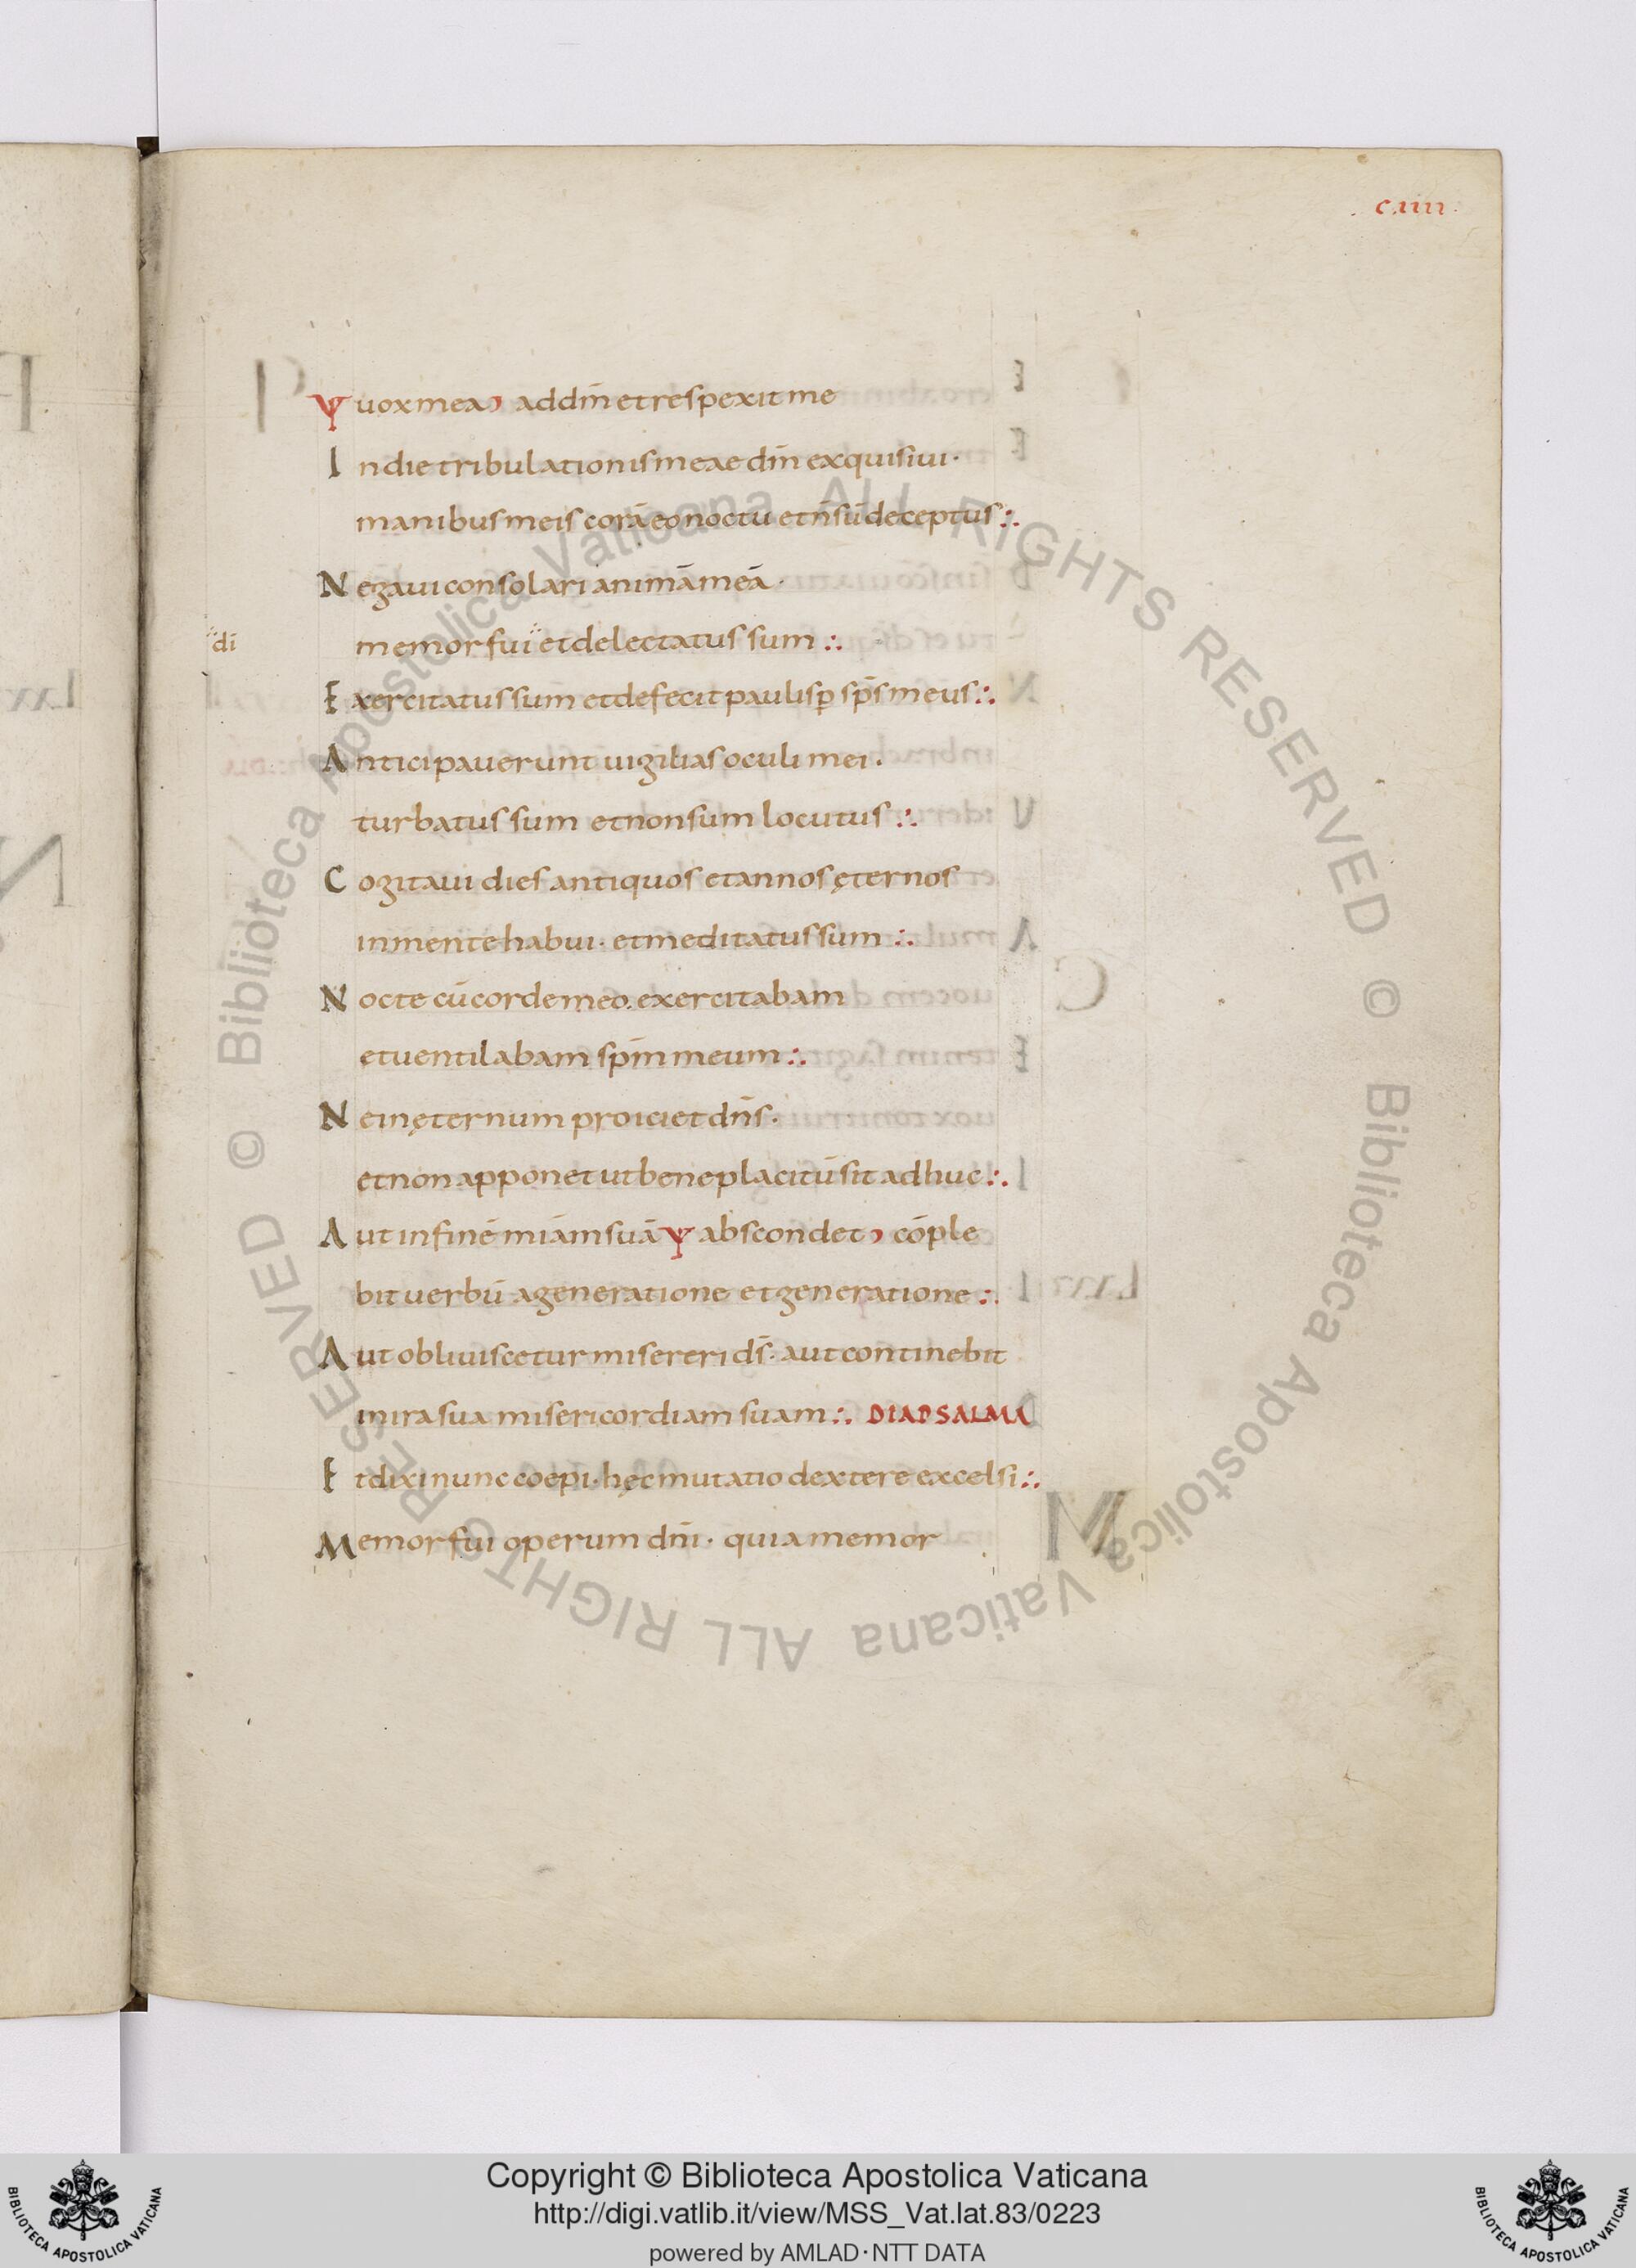 c.iiii.
Ψ uox mea, ad dnm̄ et respexit me
In die tribulationis meae dnm̄ exquisiui·
manibus meis corā eo noctu et n̄ sū deceptus ∴
Negaui consolari animā meā·
di
memor fui et delectatus sum ∴
Exercitatus sum et defecit paulisꝑ sp̄s meus ∴
Anticipauerunt uigilias oculi mei·
turbatus sum et non sum locutus ∴
Cogitaui dies antiquos et annos ęternos
in mente habui· et meditatus sum ∴
Nocte cū corde meo. exercitabam
et uentilabam sp̄m meum ∴
Ne in ęternum proiciet dn̄s·
et non apponet ut beneplacitū sit adhuc ∴
Aut in finē miam̄ suā Ψ abscondet, cōple
bit uerbū a generatione et generatione ∴
Aut obliuiscetur misereri ds̄· aut continebit
in ira sua misericordiam suam ∴ DIAPSALMA
Et dixi nunc coepi· hęc mutatio dextere excelsi ∴
Memor fui operum dn̄i· quia memor
Copyright © Biblioteca Apostolica Vaticana
http://digi.vatlib.it/view/MSS_Vat.lat.83/0223
powered by AMLAD·NTT DATA
BIBLIOTECA APOSTOLICA VATICANA
BIBLIOTECA APOSTOLICA VATICANA
© Biblioteca Apostolica Vaticana ALL RIGHTS RESERVED © Biblioteca Apostolica Vaticana ALL RIGHTS RESERVED